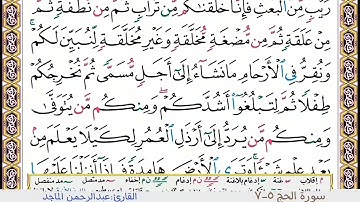 رَيْبٍ مِّنَ ٱلْبَعْثِ فَإِنَّا خَلَقْنَٰكُم مِّن تُرَابٍ ثُمَّ مِن نُّطْفَةٍ ثُمَّ
مِنْ عَلَقَةٍ ثُمَّ مِن مُّضْغَةٍ مُّخَلَّقَةٍ وَغَيْرِ مُخَلَّقَةٍ لِّنُبَيِّنَ لَكُمْ ۚ
وَنُقِرُّ فِى ٱلْأَرْحَامِ مَا نَشَآءُ إِلَىٰٓ أَجَلٍ مُّسَمًّى ثُمَّ نُخْرِجُكُمْ
طِفْلًا ثُمَّ لِتَبْلُغُوٓا۟ أَشُدَّكُمْ ۖ وَمِنكُم مَّن يُتَوَفَّىٰ
وَمِنكُم مَّن يُرَدُّ إِلَىٰٓ أَرْذَلِ ٱلْعُمُرِ لِكَيْلَا يَعْلَمَ مِنۢ
بَعْدِ عِلْمٍ شَيْـًٔا ۚ وَتَرَى ٱلْأَرْضَ هَامِدَةً فَإِذَآ أَنزَلْنَا عَلَيْهَا
سورة الحج ٥-٧ القارئ:عبدالرحمن الماجد